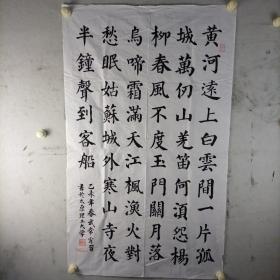 黄河遠上白雲間一片孤
城萬仞山羌笛何須怨楊
柳春風不度玉門關月落
烏啼霜滿天江楓漁火對
愁眠姑蘇城外寒山寺夜
半鐘聲到客船
乙未年春武常
書於太原理工大學